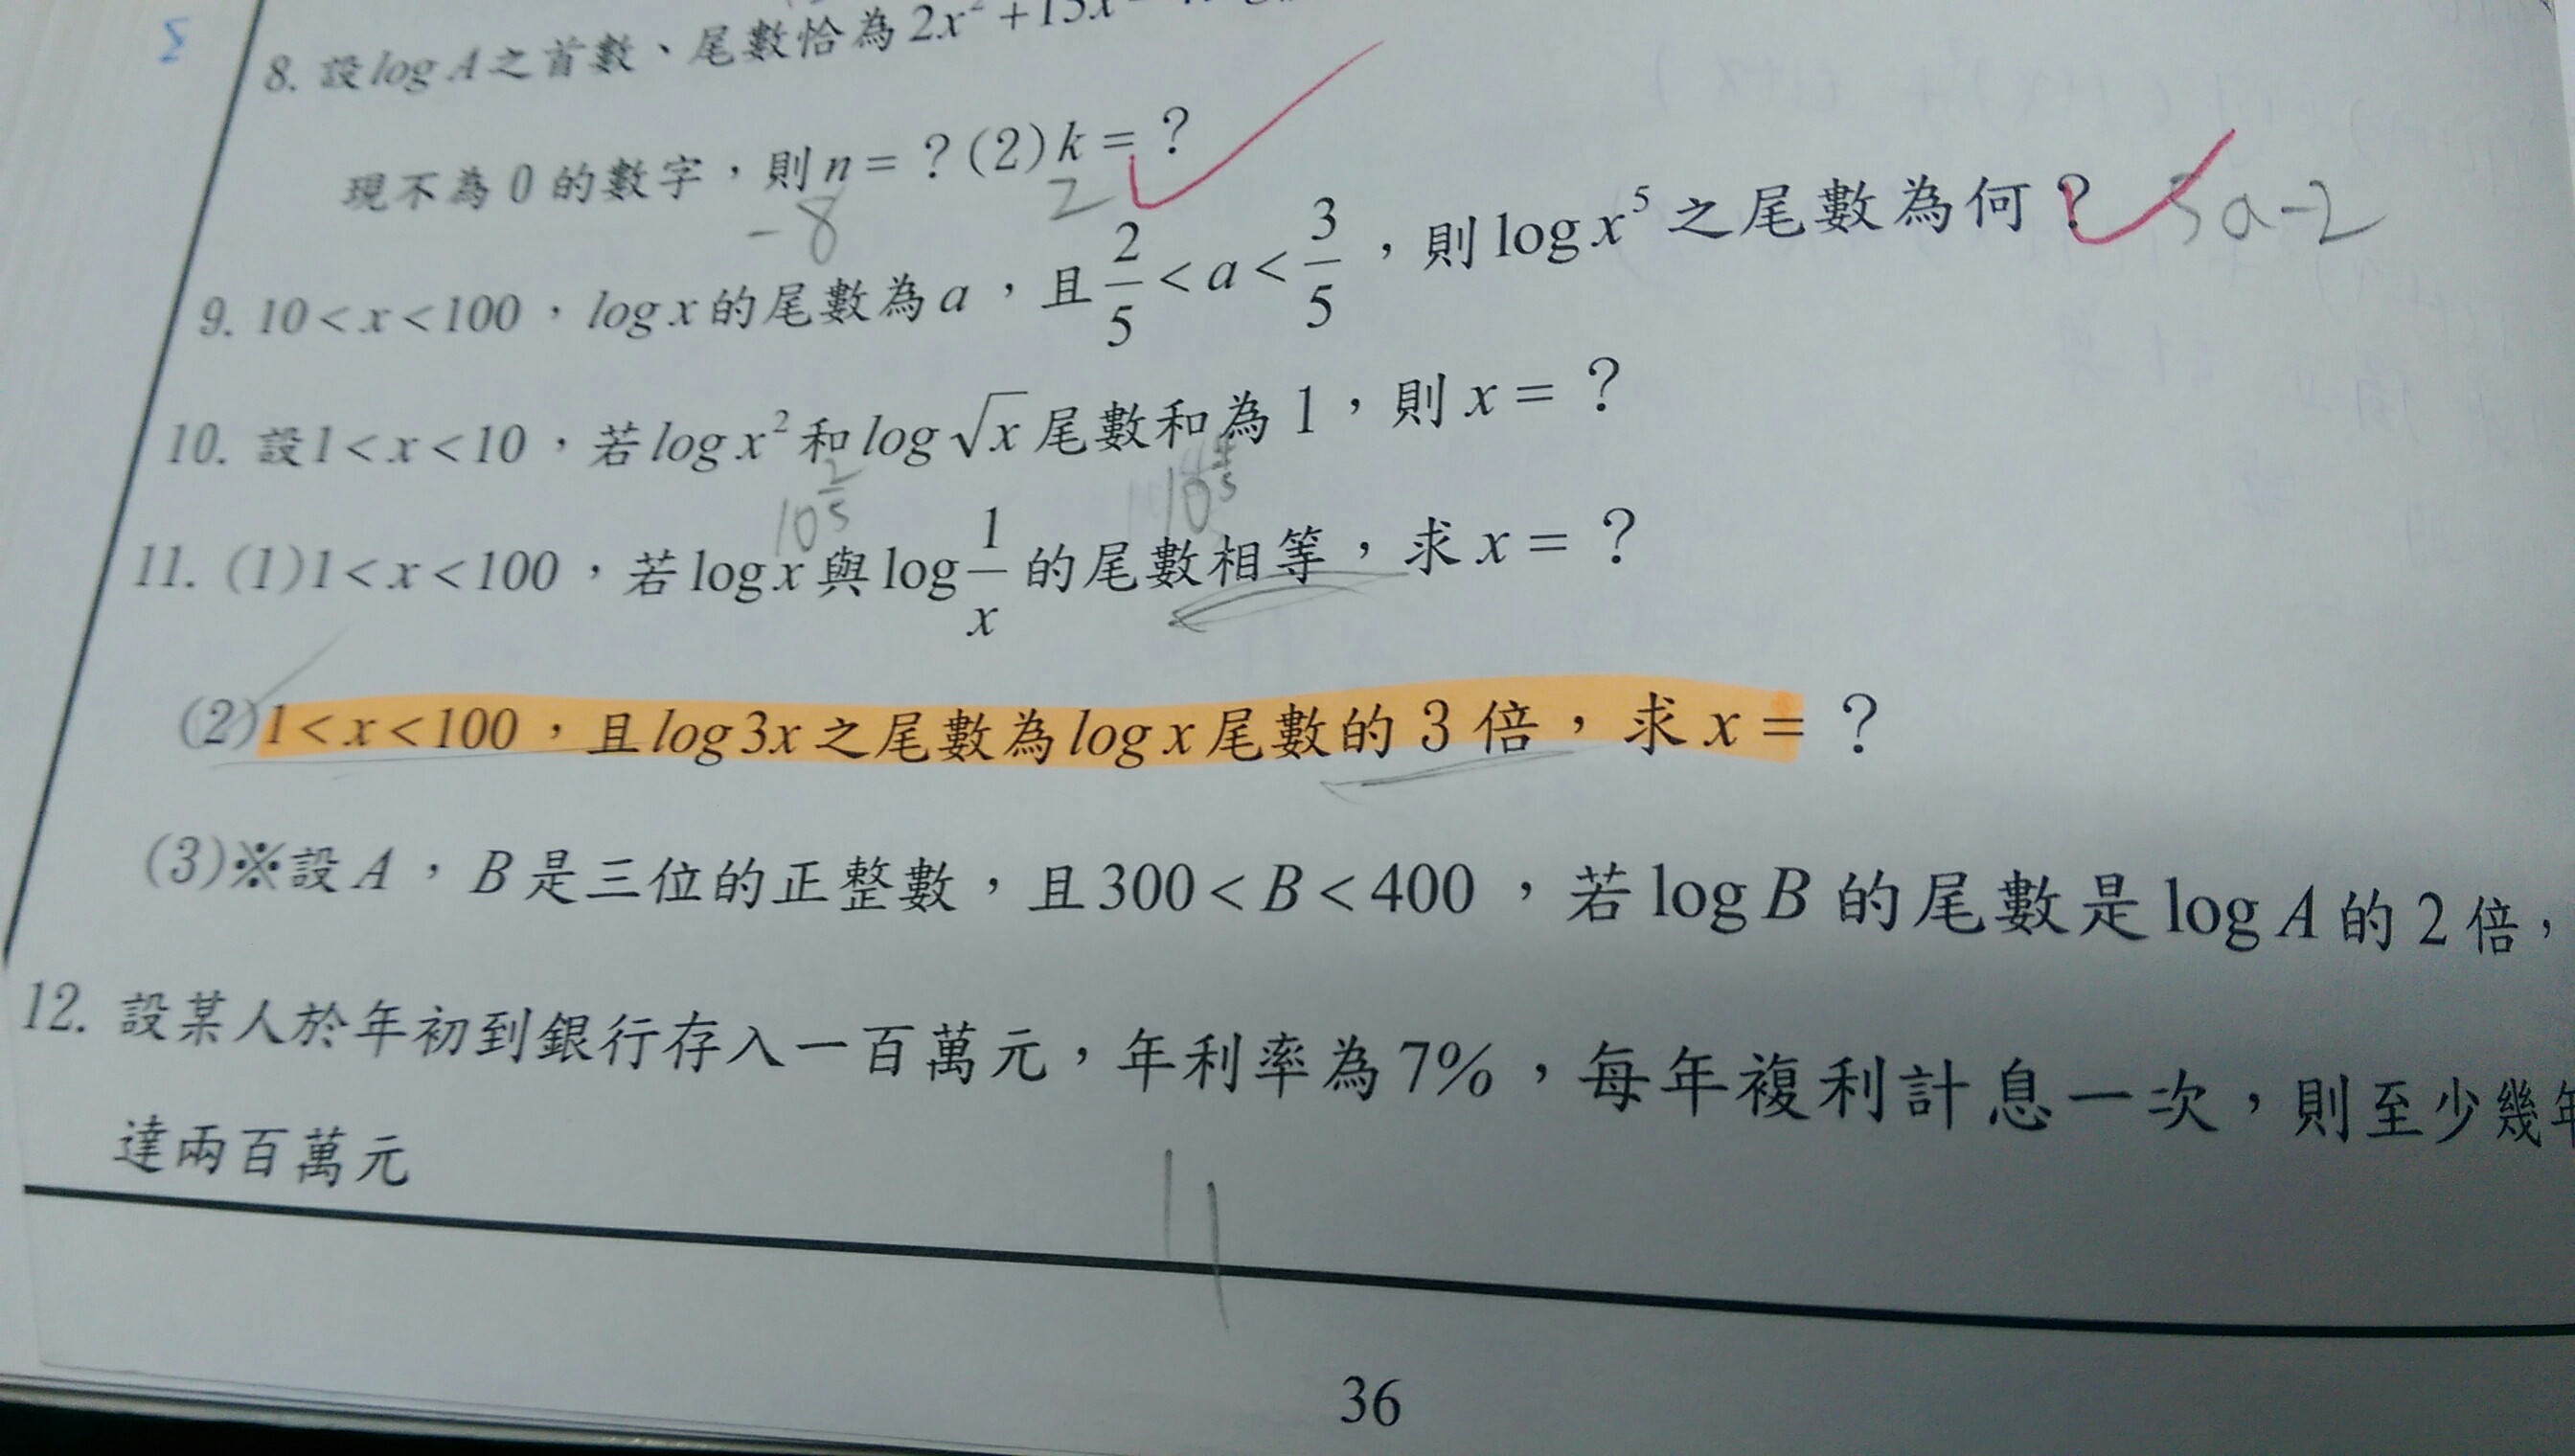 Σ
8. 設 log A 之首數、尾數恰為 2x² + 13x
現不為 0 的數字，則 n = ? (2) k = ?
-8 2
9. 10 < x < 100，log x 的尾數為 a，且 2/5 < a < 3/5，則 log x⁵ 之尾數為何？ 5a-2
10. 設 1 < x < 10，若 log x² 和 log √x 尾數和為 1，則 x = ?
10^(2/5) 10^(4/5)
11. (1) 1 < x < 100，若 log x 與 log 1/x 的尾數相等，求 x = ?
(2) 1 < x < 100，且 log 3x 之尾數為 log x 尾數的 3 倍，求 x = ?
(3) ※設 A，B 是三位的正整數，且 300 < B < 400，若 log B 的尾數是 log A 的 2 倍，
12. 設某人於年初到銀行存入一百萬元，年利率為 7%，每年複利計息一次，則至少幾年
達兩百萬元
11
36